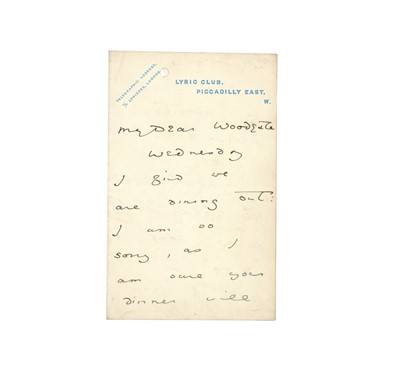 TELEGRAPHIC ADDRESS,
LONDON.
LYRIC CLUB,
PICCADILLY EAST,
W.
My Dear Woodgate
Wednesday
I find we
are dining out:
I am so
sorry, as I
am sure your
dinner will